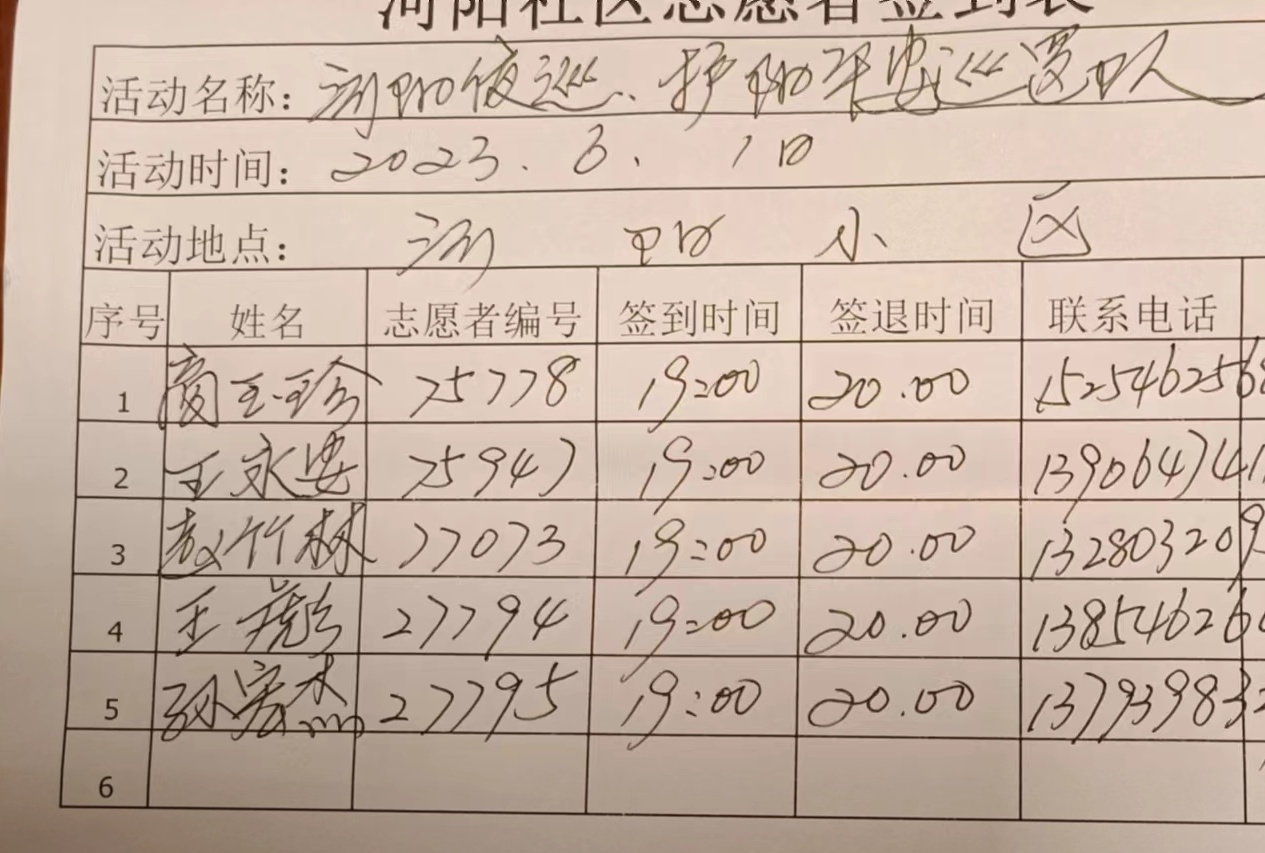 河阳社区志愿者签到表
活动名称: 河阳夜巡、护阳平安巡逻队
活动时间: 2023.6.1日
活动地点: 河阳小区
序号 姓名 志愿者编号 签到时间 签退时间 联系电话
1 商玉珍 75778 19:00 20.00 152546256
2 王永安 75947 19:00 20.00 139064741
3 赵竹林 77073 19:00 20.00 132803209
4 王彪 27794 19:00 20.00 13854626
5 孙宏杰 27795 19:00 20.00 137939832
6